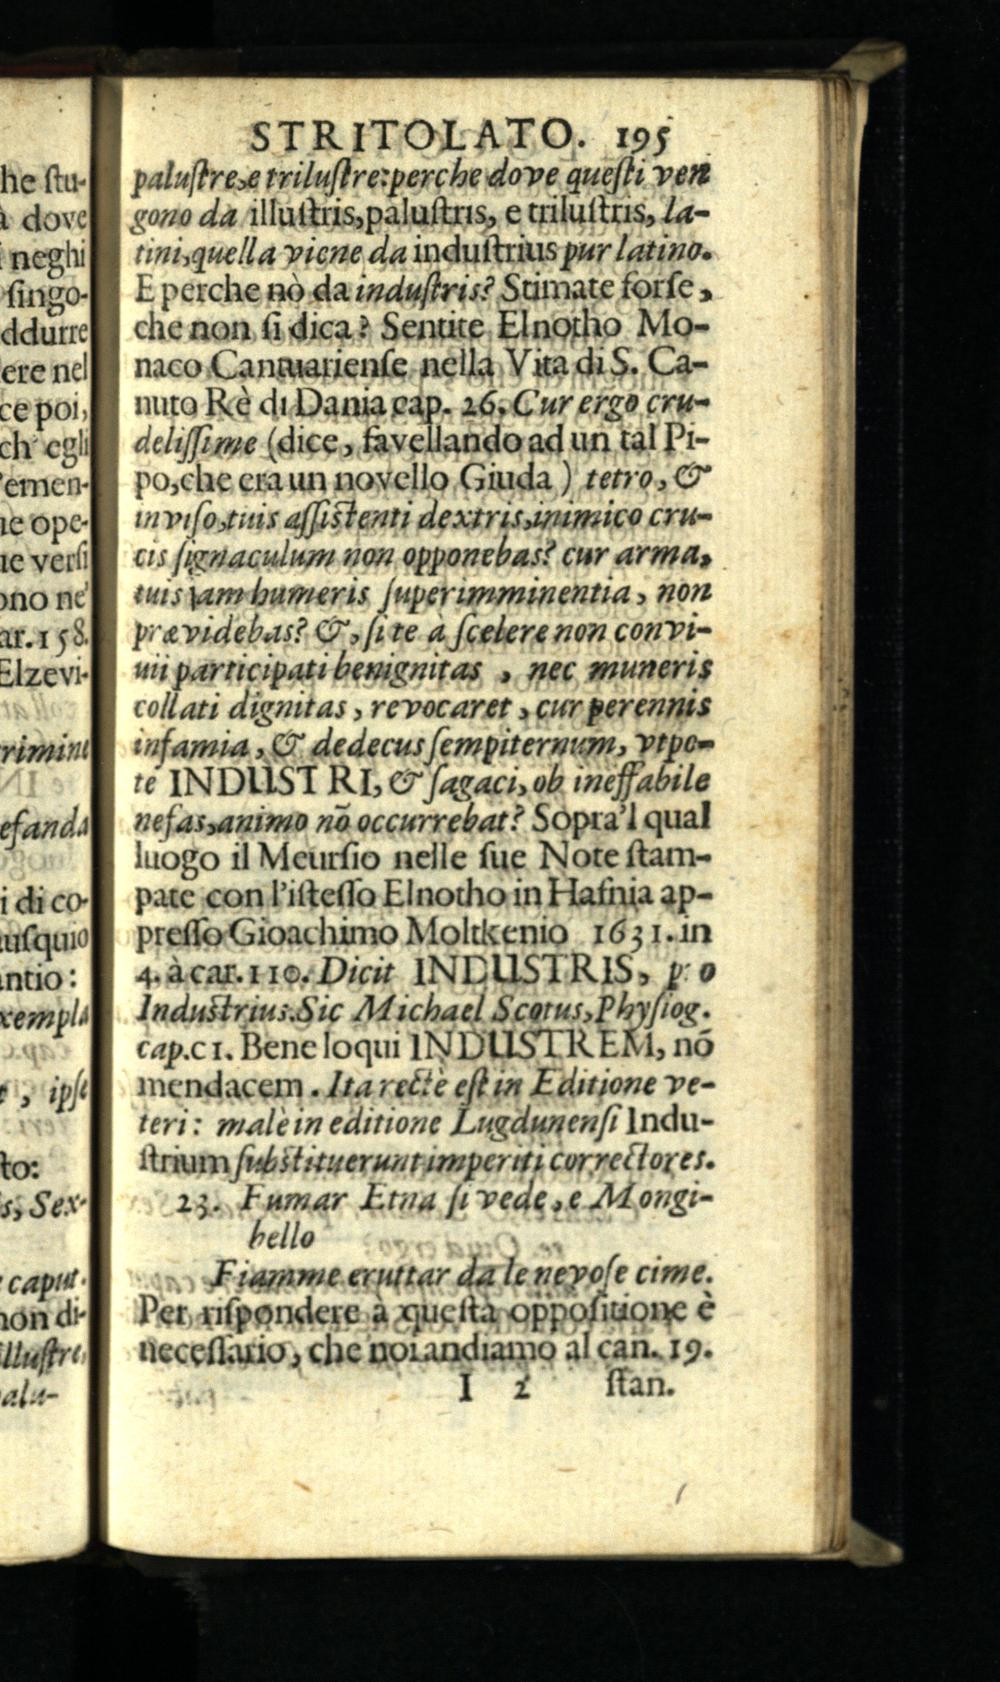 he ſtu-
à dove
i neghi
ſingo-
ddurre
ere nel
ce poi,
ch' egli
'emen-
ne ope-
ne verſi
ono ne'
ar. 158.
Elzevi-
rimine
efanda
i di co-
uſquio
antio:
xempla
, ipſe
to:
s, Sex-
caput.
non di-
lluſtre,
alu-
STRITOLATO. 195
paluſtre,e triluſtre:perche dove queſti ven
gono da illuſtris,paluſtris, e triluſtris, la-
tini,quella viene da induſtrius pur latino.
E perche nò da induſtris? Stimate forſe,
che non ſi dica? Sentite Elnotho Mo-
naco Cantuarienſe nella Vita di S. Ca-
nuto Rè di Dania cap. 26. Cur ergo cru-
deliſſime (dice, favellando ad un tal Pi-
po,che era un novello Giuda) tetro, &
inviſo,tuis aſſiſtenti dextris,inimico cru-
cis ſignaculum non opponebas? cur arma,
tuis jam humeris ſuperimminentia, non
prævidebas? &, ſi te a ſcelere non convi-
uii participati benignitas , nec muneris
collati dignitas, revocaret, cur perennis
infamia, & dedecus ſempiternum, vtpo-
te INDUSTRI, & ſagaci, ob ineffabile
nefas,animo nō occurrebat? Sopra'l qual
luogo il Meurſio nelle ſue Note ſtam-
pate con l'iſteſſo Elnotho in Hafnia ap-
preſſo Gioachimo Moltkenio 1631. in
4. à car. 110. Dicit INDUSTRIS, pro
Induſtrius.Sic Michael Scotus,Phyſiog.
cap.CI. Bene loqui INDUSTREM, nō
mendacem. Ita rectè eſt in Editione ve-
teri: malè in editione Lugdunenſi Indu-
ſtrium ſubſtituerunt imperiti correctores.
23. Fumar Etna ſi vede, e Mongi-
bello
Fiamme eruttar da le nevoſe cime.
Per riſpondere a queſta oppoſitione è
neceſſario, che noi andiamo al can. 19.
I 2 ſtan.